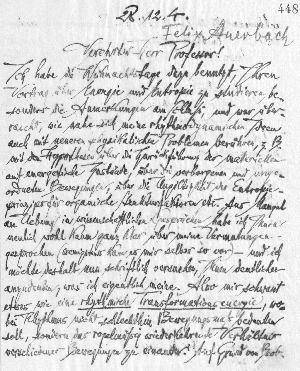 448
28.12.4.
Felix Auerbach
Verehrter Herr Professor!
Ich habe die Weihnachtstage dazu benutzt, Ihren
Vortrag über Energie und Entropie zu studieren be-
sonders die Anmerkungen am Schluß, und war über-
rascht, wie nahe sich meine rhythmodynamischen Ideen
auch mit neueren physikalischen Problemen berühren, z. B.
mit den Hypothesen über die Zurückführung der materiellen
auf energetische Zustände, über die verborgenen und unge-
ordneten Bewegungen, über die Ungültigkeit des Entropie-
prinzips für organische Struktur etc. Aus Mangel
an Uebung in wissenschaftlichen Gesprächen habe ich Ihnen
neulich wohl kaum ganz klar über meine Vermutungen
gesprochen (wenigstens kam es mir selber so vor) und ich
möchte deshalb nun schriftlich versuchen, Ihnen deutlicher
anzudeuten, was ich eigentlich meine. Also mir schwant
etwas wie eine rhythmische Transformationsenergie, wo-
bei Rhythmus nicht schlechthin Bewegungsmaß bedeuten
soll, sondern das regelmäßig wiederkehrende Verhältnis
verschiedener Bewegungen zu einander. Auf Grund von